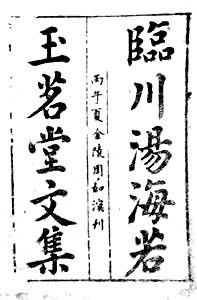 臨川湯海若
丙午夏金陵周如溟刊
玉茗堂文集